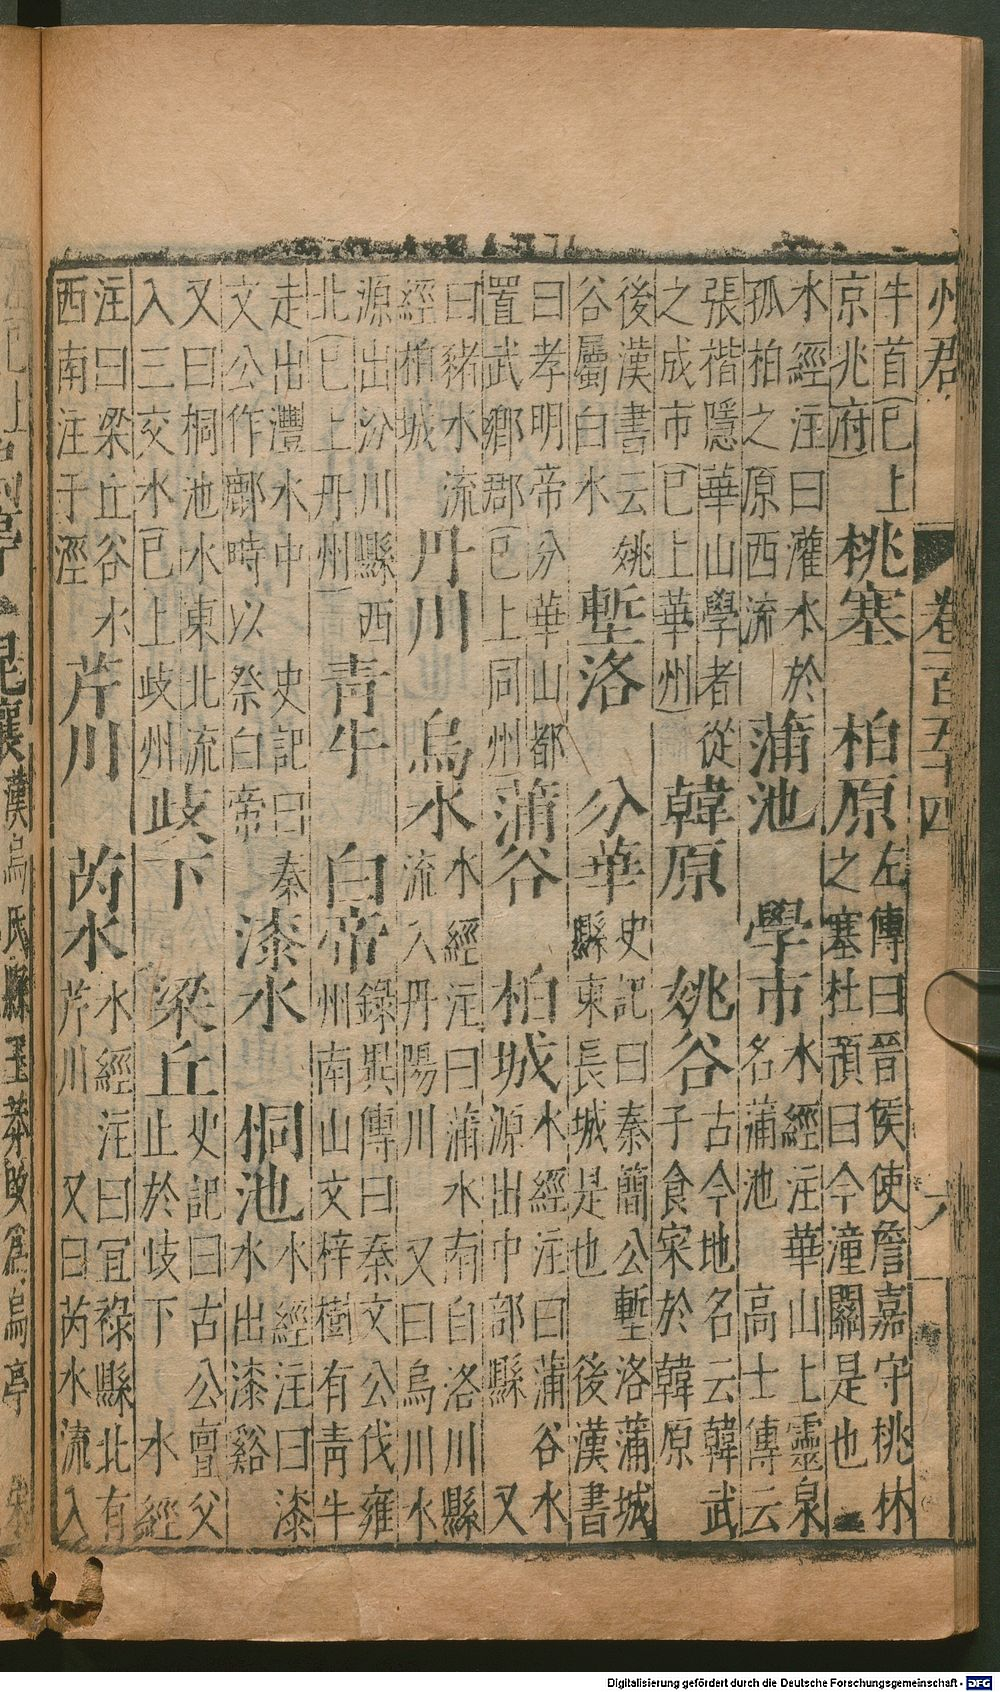 州郡 卷一百五十四 六
牛首(巳上
京兆府)
桃塞 柏原
左傳曰晉侯使詹嘉守桃林
之塞杜預曰今潼關是也
水經注曰灌水於
孤柏之原西流
蒲池 學市
水經注華山上靈泉
名蒲池 高士傳云
張楷隱華山學者從
之成市(巳上華州)
韓原 姚谷
古今地名云韓武
子食宋於韓原
後漢書云姚
谷屬白水
塹洛 分華
史記曰秦簡公塹洛蒲城
縣東長城是也 後漢書
曰孝明帝分華山都
置武鄉郡(巳上同州)
蒲谷 柏城
水經注曰蒲谷水
源出中部縣 又
曰豬水流
經柏城
丹川 烏水
水經注曰蒲水南自洛川縣
流入丹陽川 又曰烏川水
源出汾川縣西
北(巳上丹州)
青牛 白帝
錄異傳曰秦文公伐雍
州南山文梓樹有青牛
走出灃水中 史記曰秦
文公作鄜時以祭白帝
漆水 桐池
水經注曰漆
水出漆谿
又曰桐池水東北流
入三交水(巳上歧州)
歧下 梁丘
史記曰古公亶父
止於歧下 水經
注曰梁丘谷水
西南注于涇
芹川 芮水
水經注曰宜祿縣北有
芹川 又曰芮水流入
漢烏氏縣王莽改為烏亭
Digitalisierung gefördert durch die Deutsche Forschungsgemeinschaft - DFG